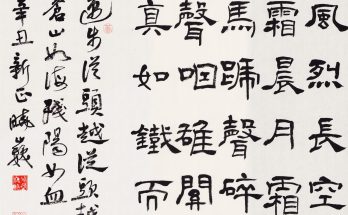 風烈長空
霜晨月霜
馬蹄聲碎
聲咽雄關
真如鐵而
邁步從頭越從頭越
蒼山如海殘陽如血
辛丑新正曉